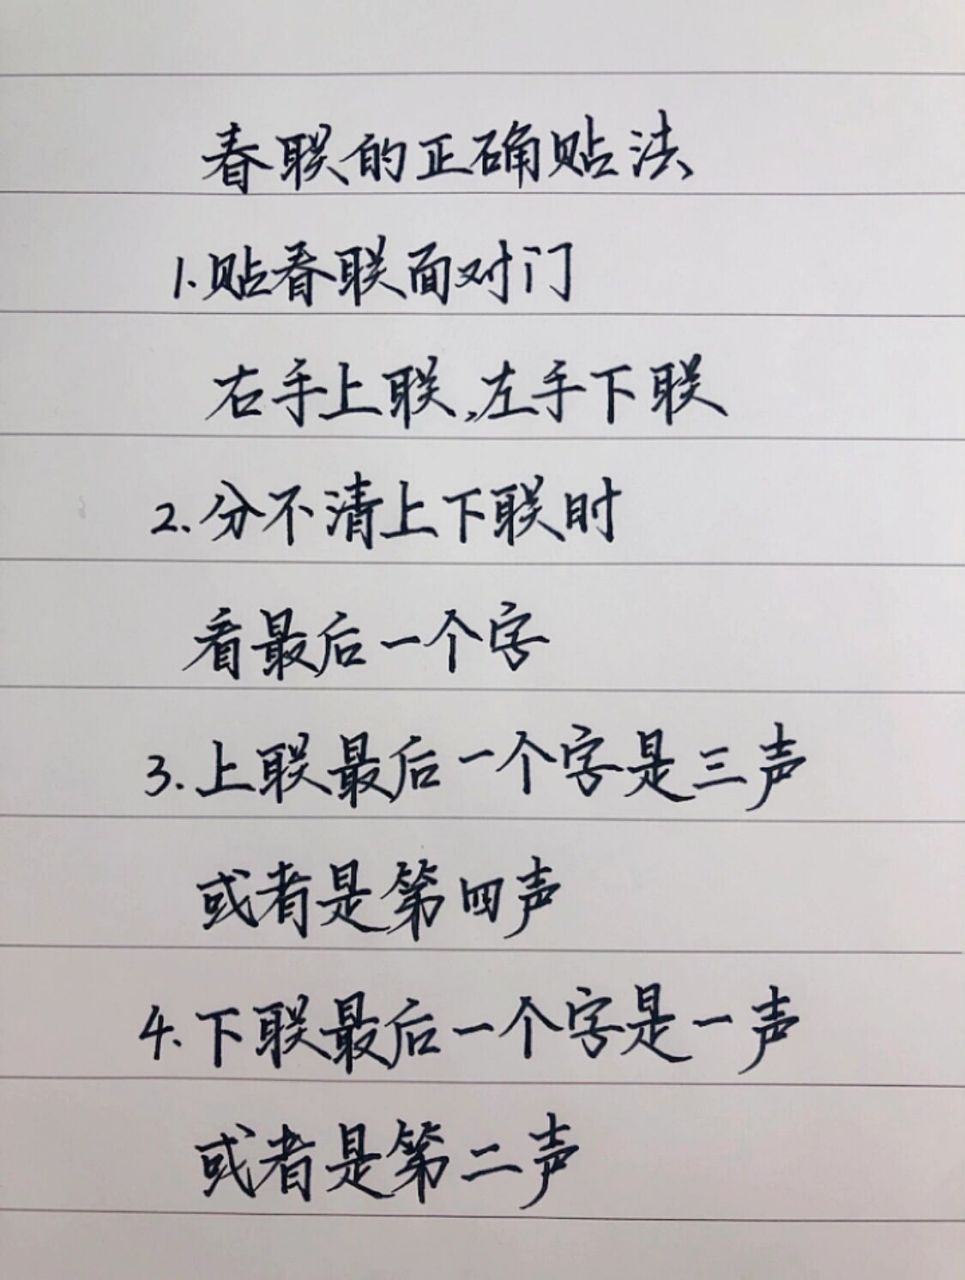 春联的正确贴法
1.贴春联面对门
右手上联,左手下联
2.分不清上下联时
看最后一个字
3.上联最后一个字是三声
或者是第四声
4.下联最后一个字是一声
或者是第二声